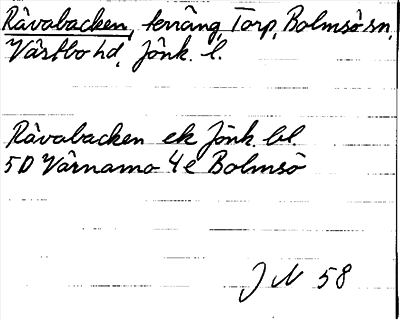 Råvabacken, terräng, Torp, Bolmsö sn,
Västbo hd, Jönk. l.
Råvabacken ek Jönk. bl.
5D Värnamo 4e Bolmsö
J N 58